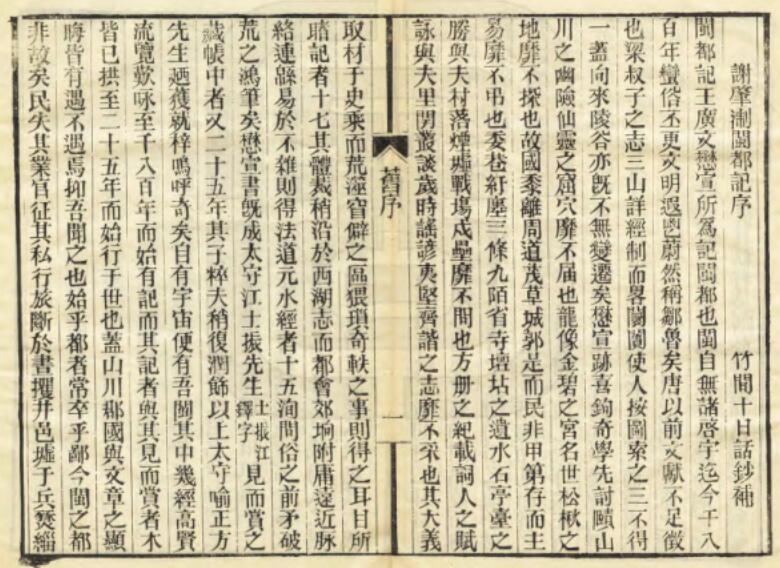 謝肇淛閩都記序　竹間十日話鈔補
閩都記王廣文懋宣所爲記閩都也閩自無諸啓宇迄今千八
百年蠻俗丕更文明遐鬯蔚然稱鄒魯矣唐以前文獻不足徵
也梁叔子之志三山詳經制而畧闤闠使人按圖索之三不得
一蓋向來陵谷亦旣不無變遷矣懋宣跡喜鉤奇學先討賾山
川之幽險仙靈之窟穴靡不届也龍像金碧之宮名世松楸之
地靡不探也故國黍離周道茂草城郭是而民非甲第存而主
易靡不弔也委巷紆廛三條九陌省寺壇坫之遺水石亭臺之
勝與夫村落煙墟戰塲戍壘靡不問也方册之紀載詞人之賦
詠與夫里閈叢談歲時謠諺夷堅齊諧之志靡不采也其大義
舊序
一
取材于史乘而荒蓙窅僻之區猥瑣奇軼之事則得之耳目所
睹記者十七其體裁稍沿於西湖志而都會郊坰附庸遠近脉
絡連繇易於不雜則得法道元水經者十五洵問俗之前矛破
荒之鴻筆矣懋宣書旣成太守江士振先生士振江鐸字見而賞之
藏帳中者又二十五年其子粹夫稍復潤飾以上太守喻正方
先生廼獲就梓嗚呼奇矣自有宇宙便有吾閩其中幾經高賢
流覽歎咏至千八百年而始有記而其記者與其見而賞者木
皆已拱至二十五年而始行于世也蓋山川郡國與文章之顯
晦皆有遇不遇焉抑吾聞之也始乎都者常卒乎鄙今閩之都
非故矣民失其業官征其私行旅斷於晝攫井邑墟于兵燹緇